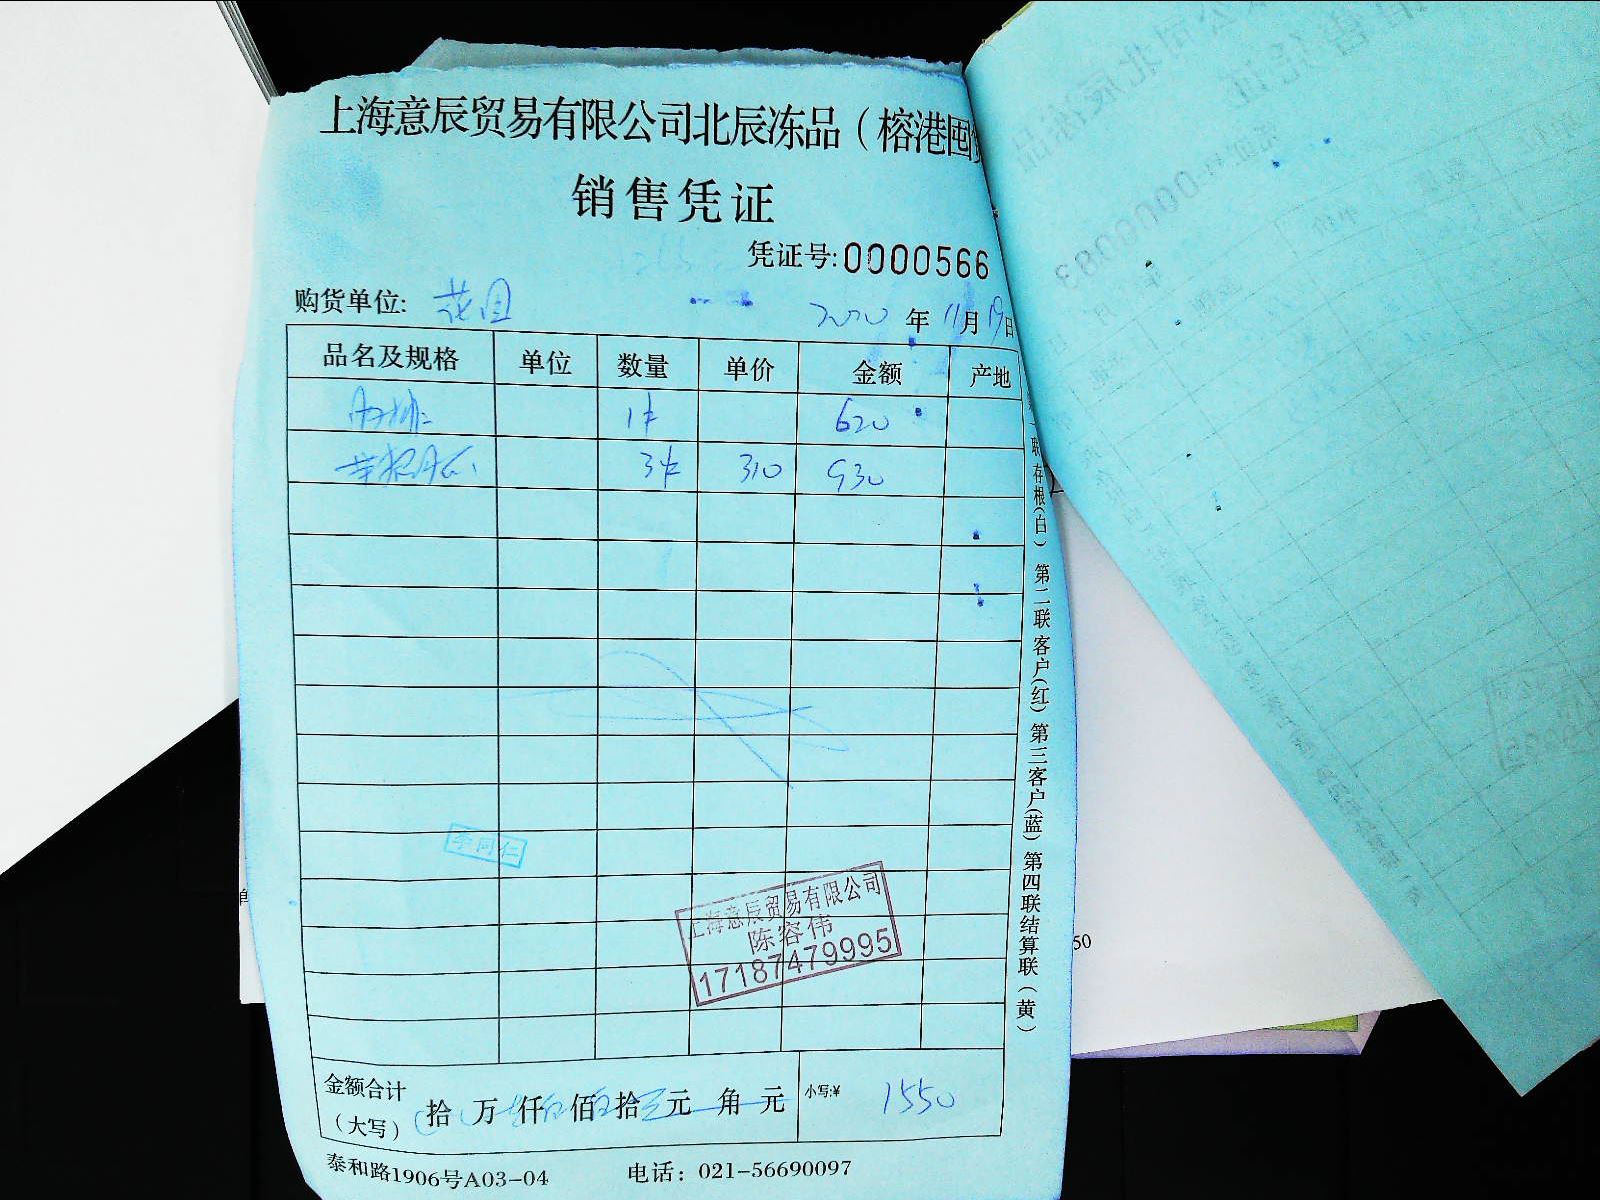 上海意辰贸易有限公司北辰冻品（榕港囤
销售凭证
凭证号:0000566
购货单位: 花园
2020年11月19日
品名及规格 单位 数量 单价 金额 产地
1件 620
3件 310 930
联存根(白) 第二联客户(红) 第三客户(蓝) 第四联结算联(黄)
李阿仁
上海意辰贸易有限公司
陈容伟
17187479995
金额合计
(大写)
拾 万 仟 佰 拾 元 角 元
小写:¥ 1550
泰和路1906号A03-04 电话: 021-56690097
50
0000083